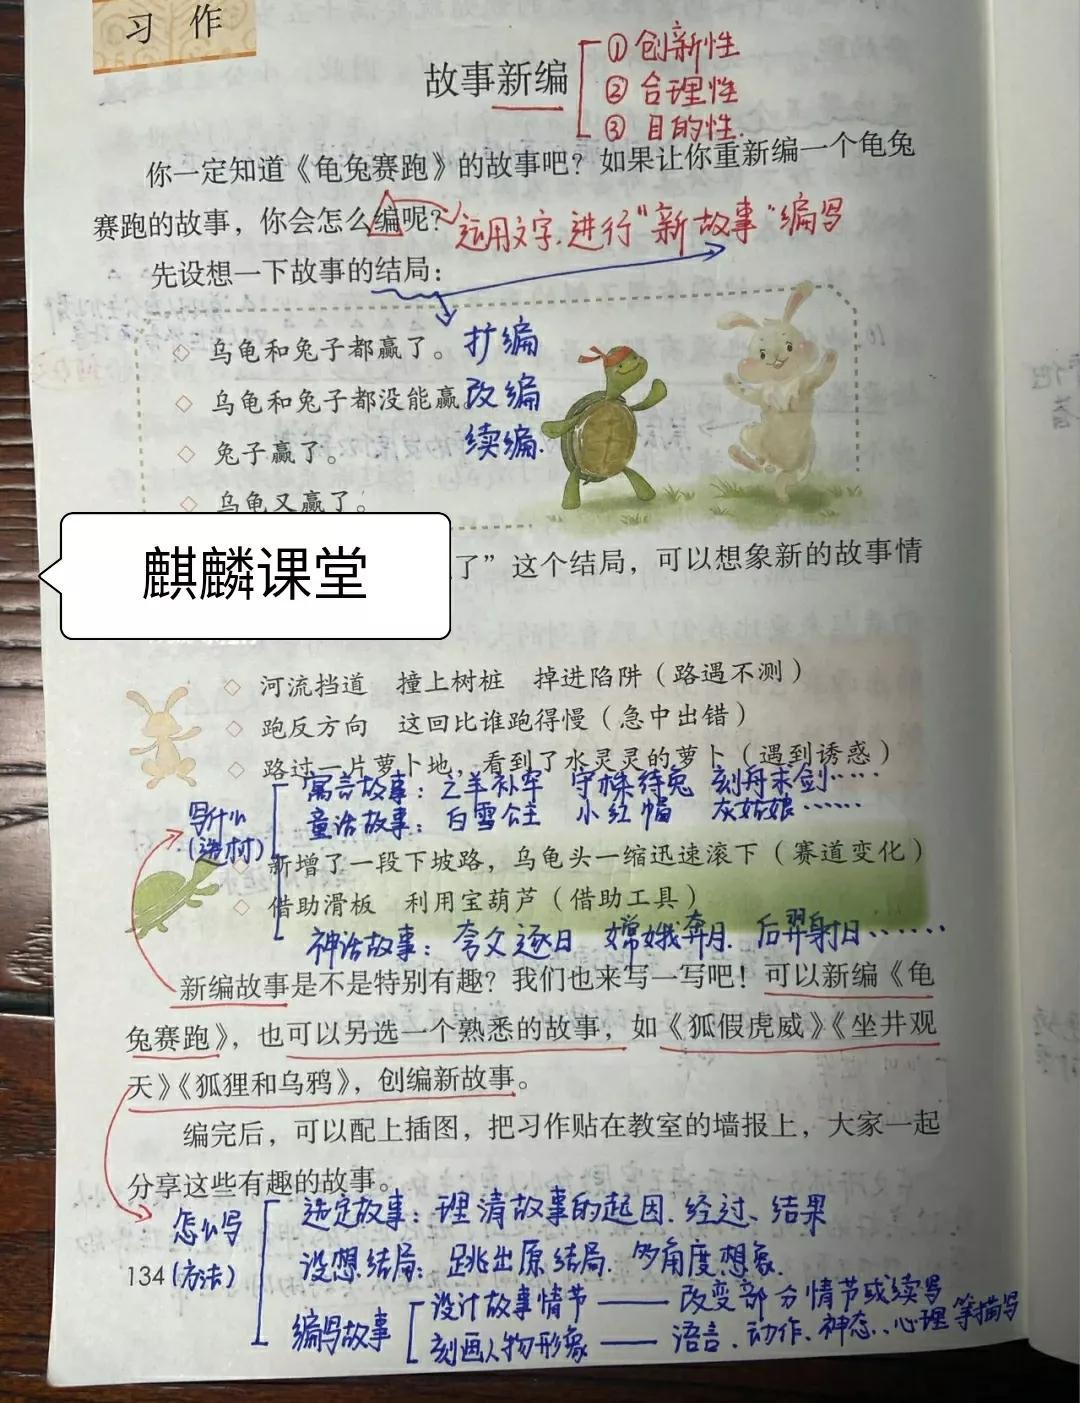 习作
故事新编
① 创新性
② 合理性
③ 目的性.
你一定知道《龟兔赛跑》的故事吧？如果让你重新编一个龟兔
赛跑的故事，你会怎么编呢？
运用文字.进行"新故事"编写
先设想一下故事的结局：
◇ 乌龟和兔子都赢了。
扩编
◇ 乌龟和兔子都没能赢。
改编
◇ 兔子赢了。
续编.
◇ 乌龟又赢了。
麒麟课堂
了”这个结局，可以想象新的故事情
◇ 河流挡道 撞上树桩 掉进陷阱（路遇不测）
◇ 跑反方向 这回比谁跑得慢（急中出错）
◇ 路过一片萝卜地，看到了水灵灵的萝卜（遇到诱惑）
写什么
(选材)
寓言故事：亡羊补牢 守株待兔 刻舟求剑……
童话故事：白雪公主 小红帽 灰姑娘……
◇ 新增了一段下坡路，乌龟头一缩迅速滚下（赛道变化）
◇ 借助滑板 利用宝葫芦（借助工具）
神话故事：夸父逐日 嫦娥奔月. 后羿射日……
新编故事是不是特别有趣？我们也来写一写吧！可以新编《龟
兔赛跑》，也可以另选一个熟悉的故事，如《狐假虎威》《坐井观
天》《狐狸和乌鸦》，创编新故事。
编完后，可以配上插图，把习作贴在教室的墙报上，大家一起
分享这些有趣的故事。
怎么写
(方法)
选定故事：理清故事的起因.经过、结果
设想结局：跳出原结局.多角度想象.
编写故事
设计故事情节——改变部分情节或续写
刻画人物形象——语言.动作.神态.心理等描写
134